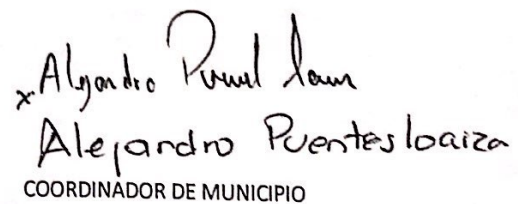 x Alejandro
Alejandro Puentes loaiza
COORDINADOR DE MUNICIPIO